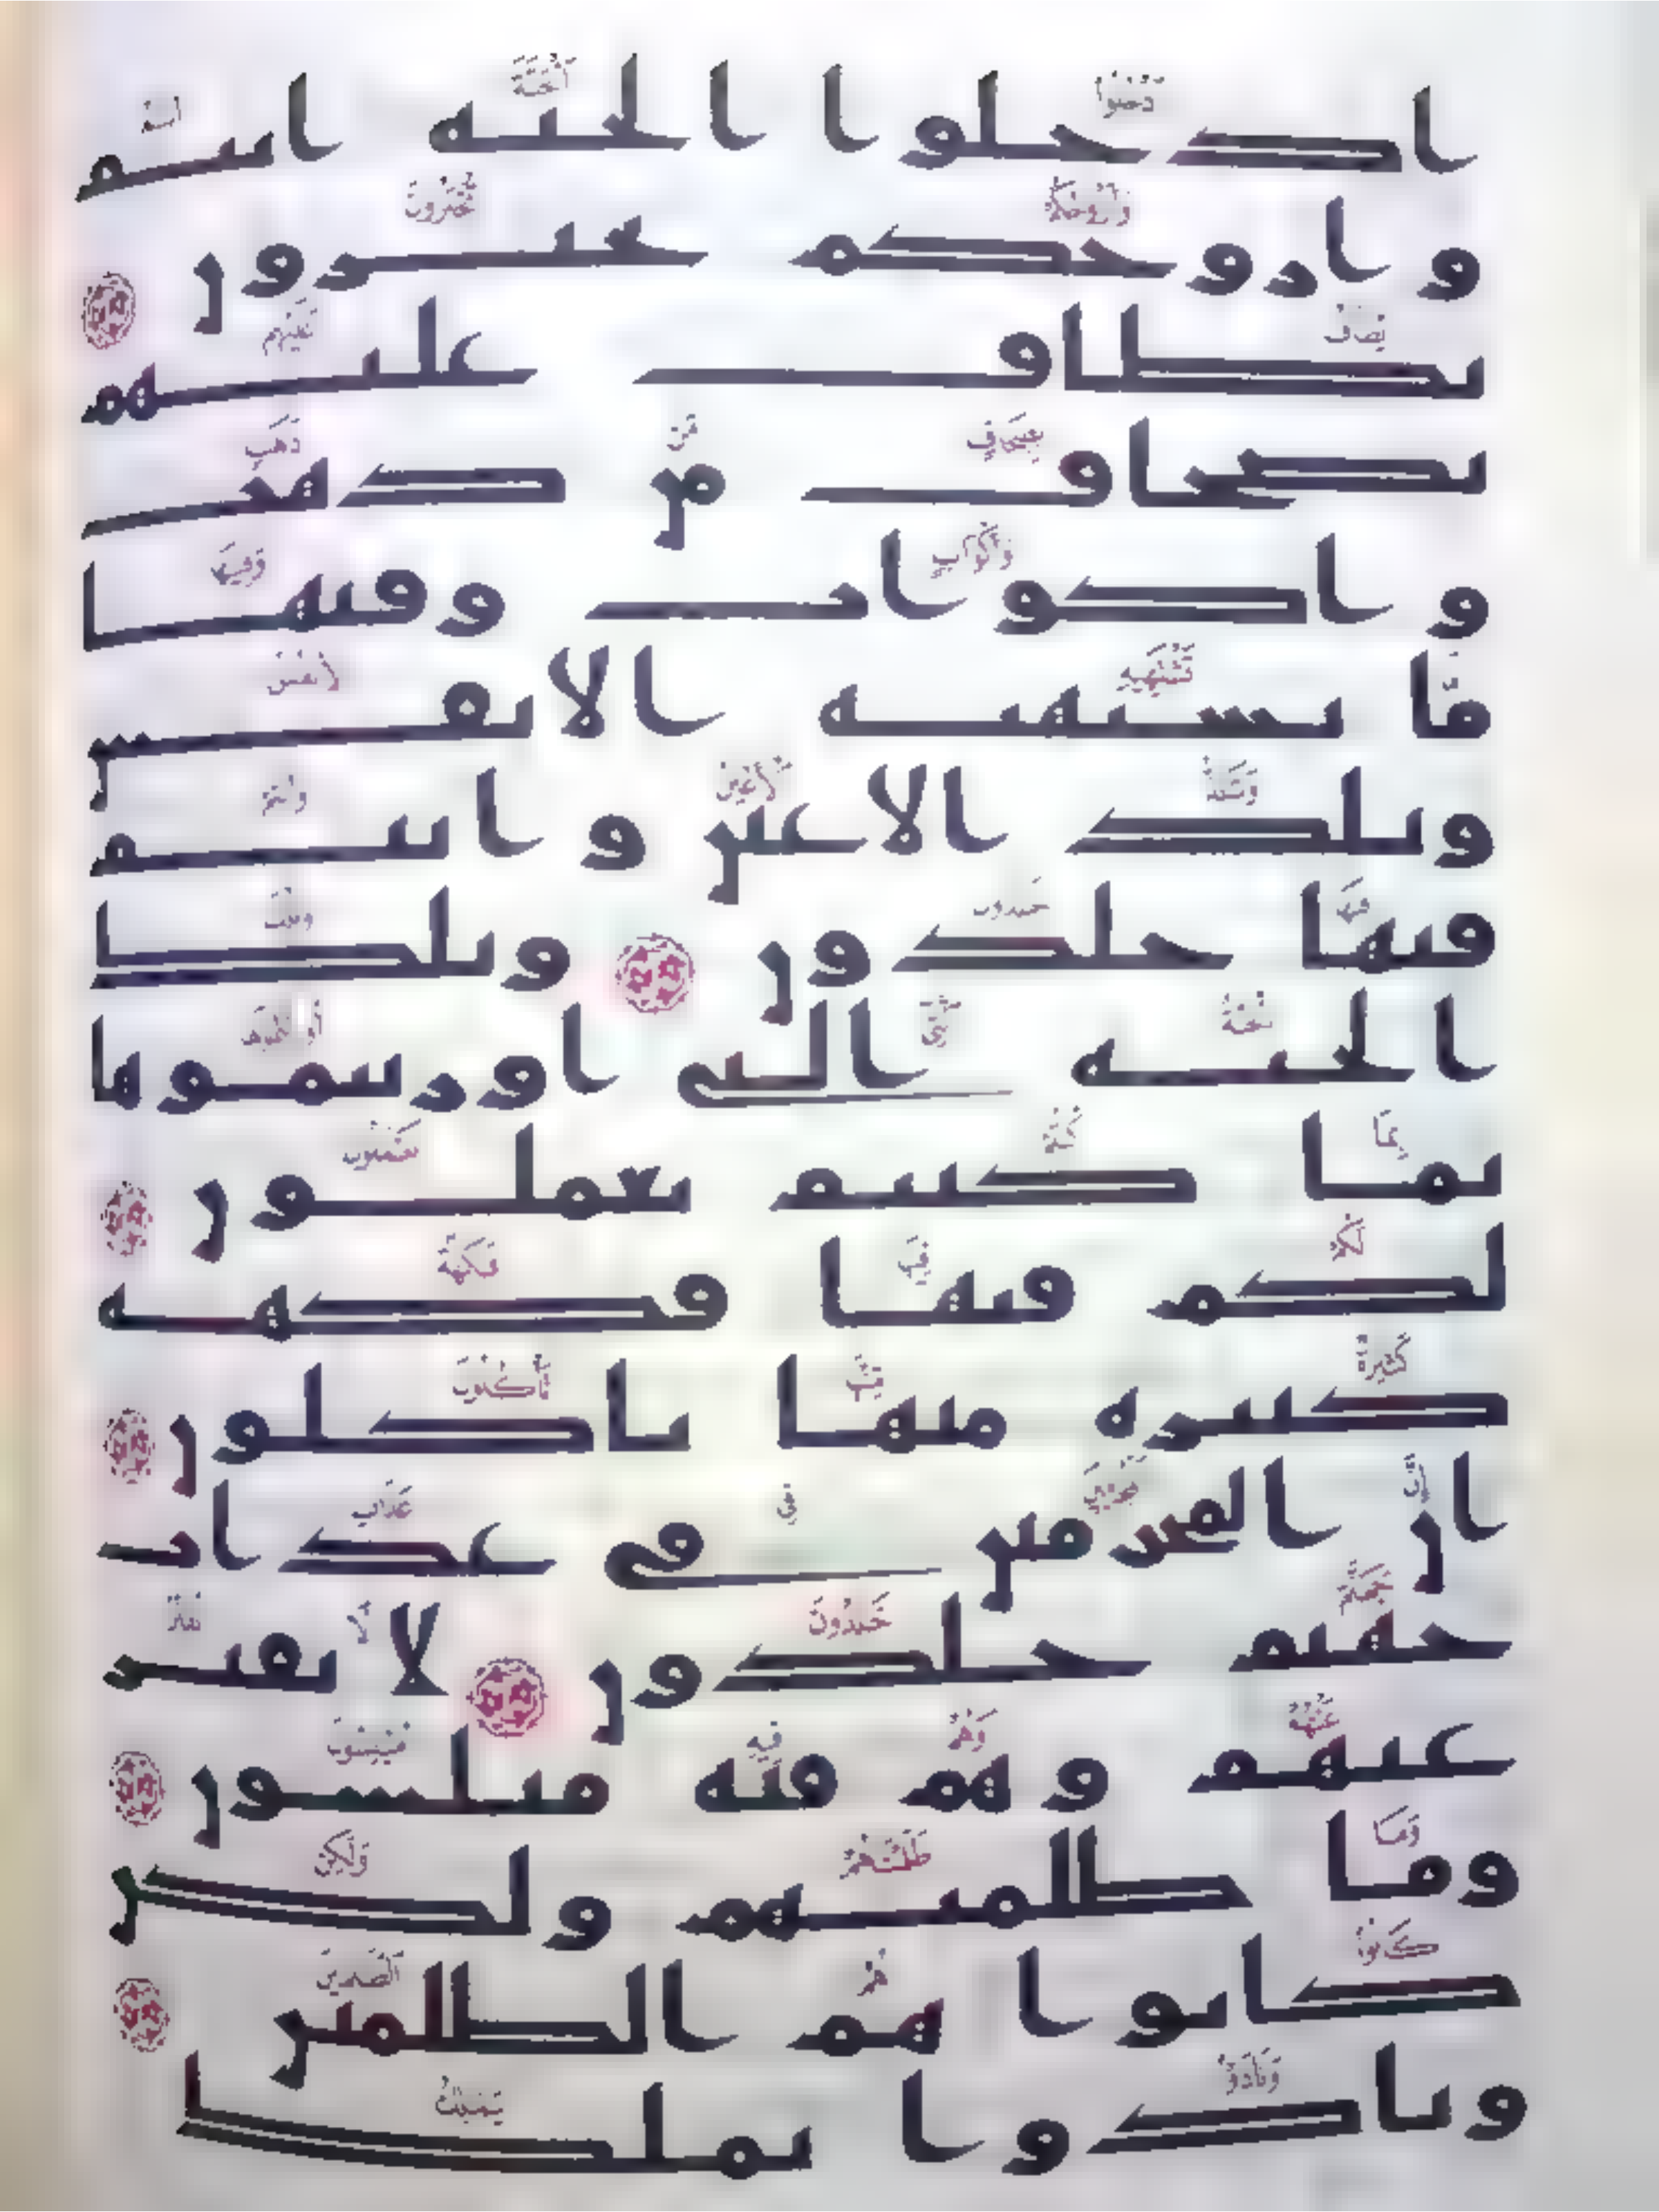 ادخلوا الجنه انتم
وازوجكم تحبرون
يطاف عليهم
بصحاف من ذهب
واكواب وفيها
ما تشتهيه الانفس
وتلذ الاعين وانتم
فيها خلدون وتلك
الجنه التي اورثتموها
بما كنتم تعملون
لكم فيها فكهه
كثيره منها تاكلون
ان المجرمين في عذاب
جهنم خلدون لا يفتر
عنهم وهم فيه مبلسون
وما ظلمنهم ولكن
كانوا هم الظلمين
ونادوا يملك